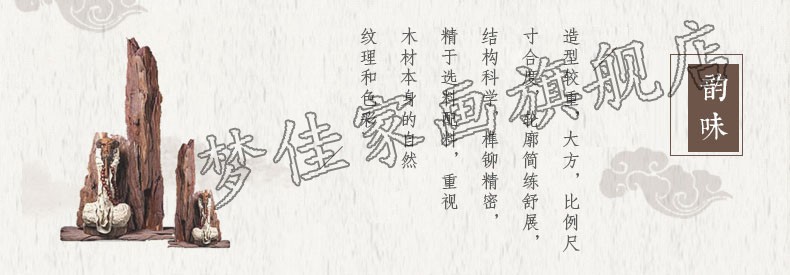 韵味
造型较重，大方，比例尺
寸合度，轮廓简练舒展，
结构科学，榫铆精密，
精于选料配料，重视
木材本身的自然
纹理和色彩
梦佳家画旗舰店